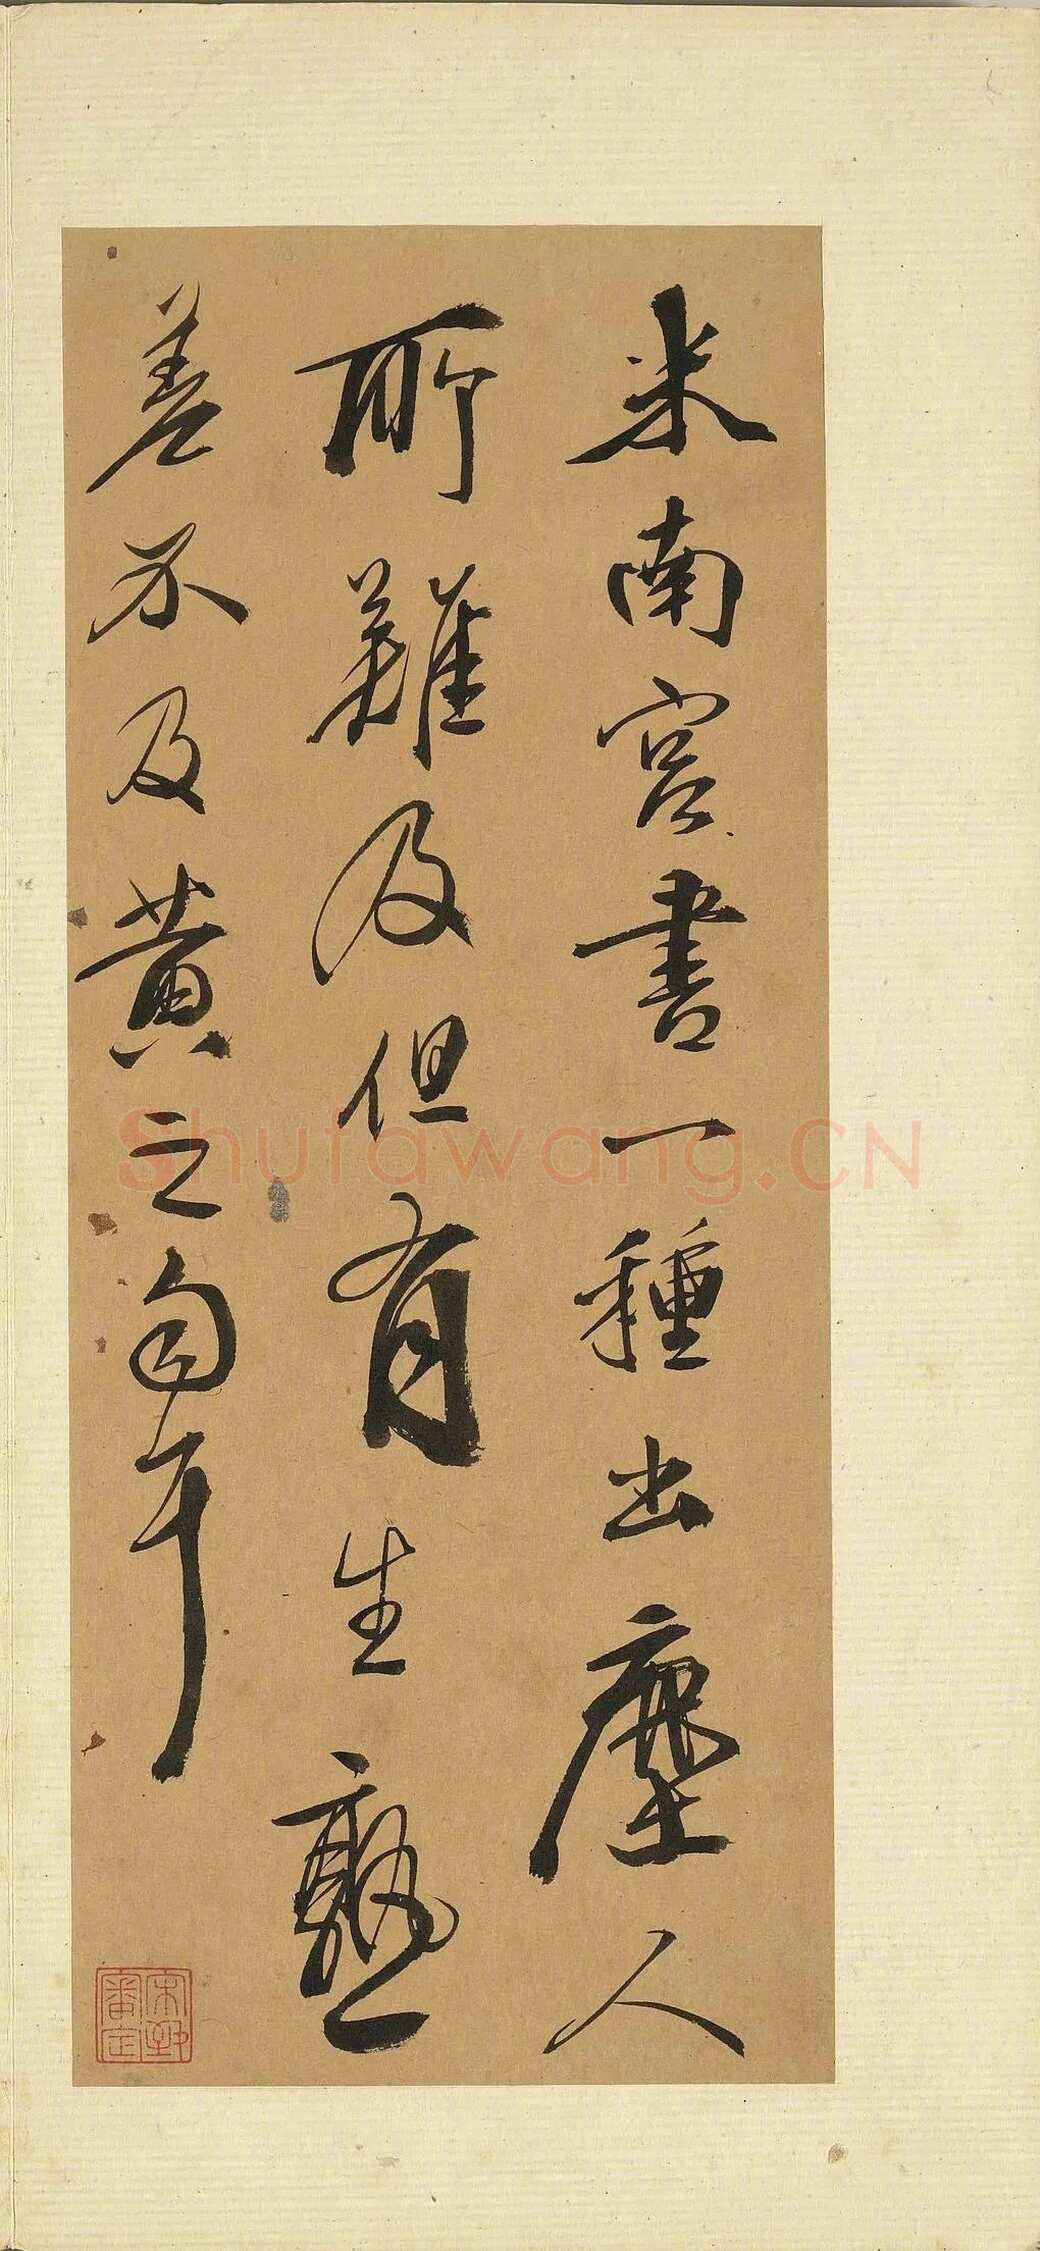 米南宮書一種出塵人
所難及但有生熟
差不及黄之匀耳
Shufawang.CN